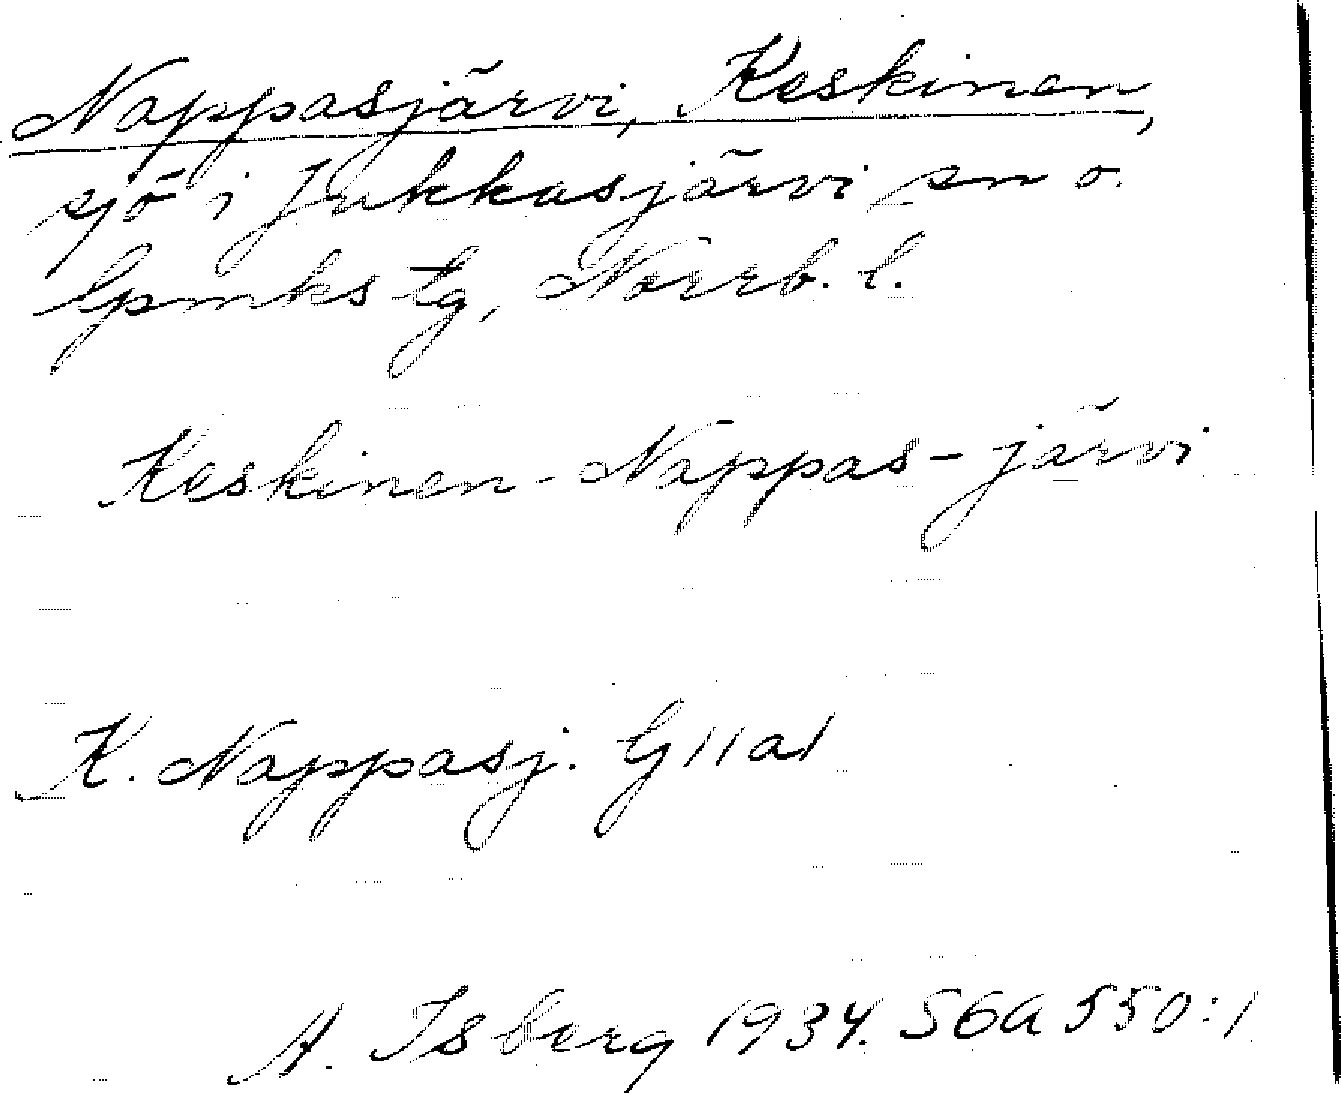 Nappasjärvi, Keskinen,
sjö i Jukkasjärvi sn o.
lpmks tg, Norrb. l.
Keskinen-Nappas-järvi
K. Nappasj. G11a1
A. Isberg 1934. SGA 550:1